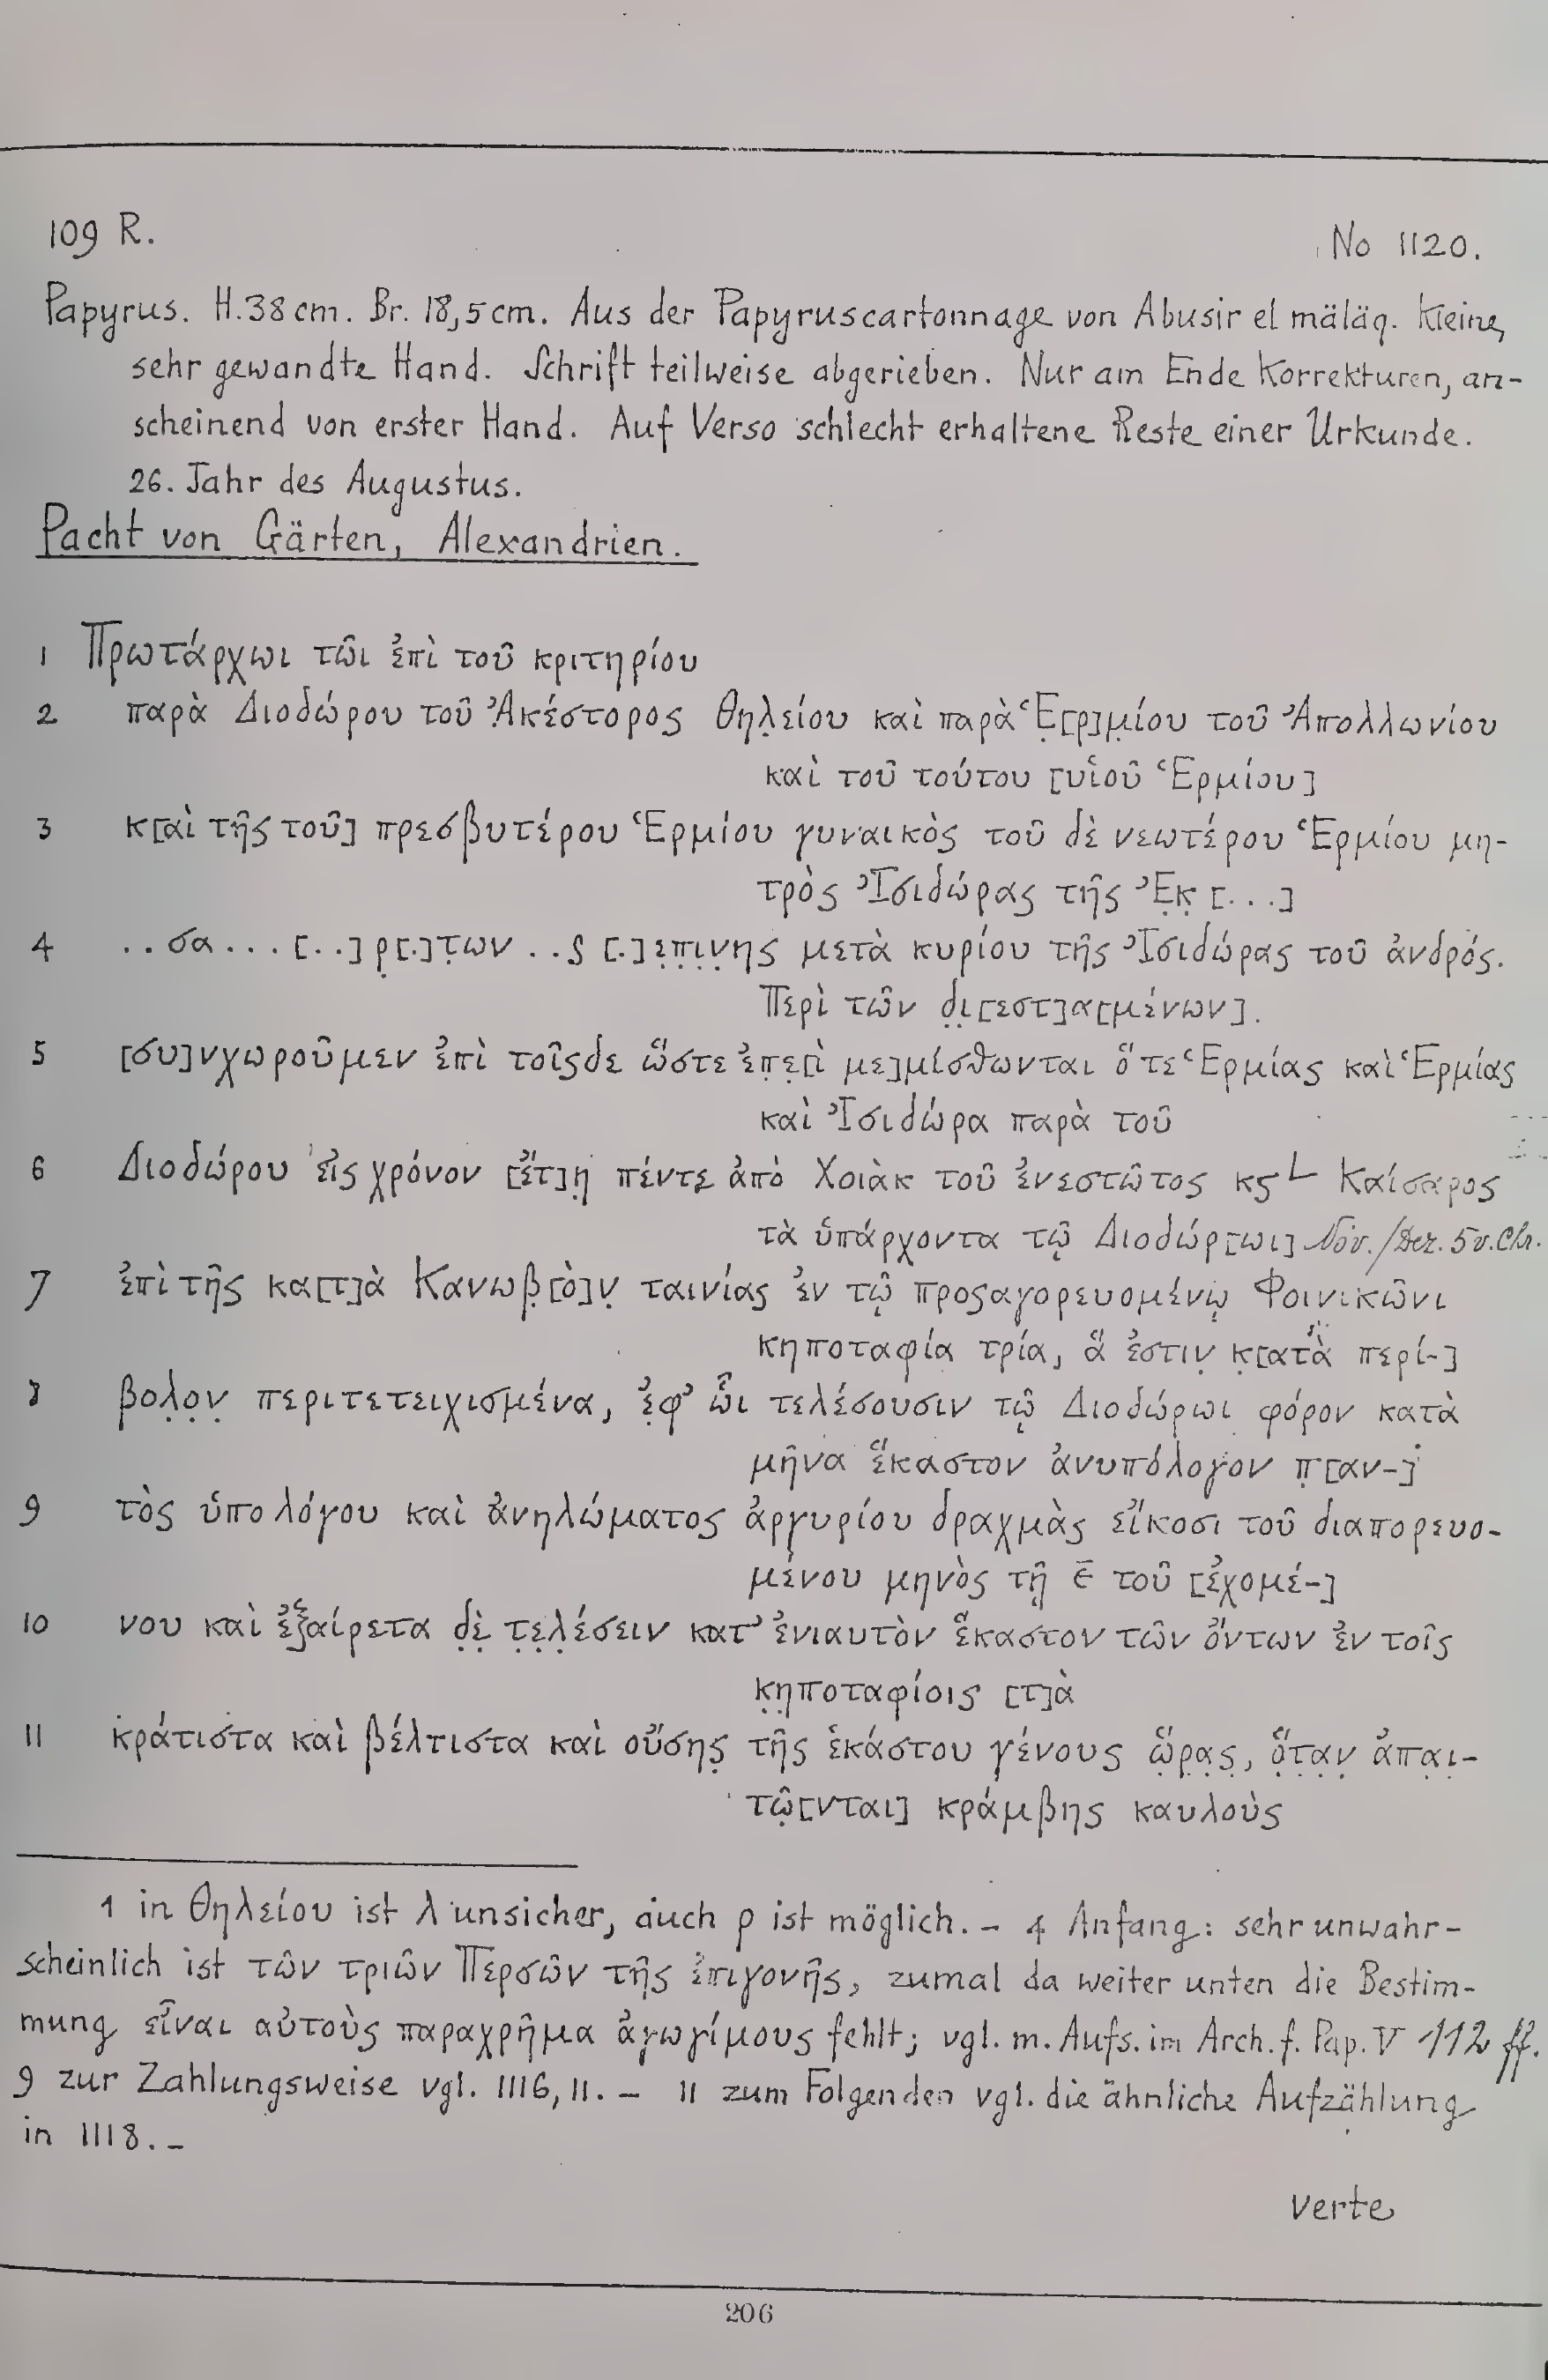 109 R.
No 1120.
Papyrus. H. 38 cm. Br. 18,5 cm. Aus der Papyruscartonnage von Abusir el mäläq. Kleine,
sehr gewandte Hand. Schrift teilweise abgerieben. Nur am Ende Korrekturen, an-
scheinend von erster Hand. Auf Verso schlecht erhaltene Reste einer Urkunde.
26. Jahr des Augustus.
Pacht von Gärten, Alexandrien.
1 Πρωτάρχωι τῶι ἐπὶ τοῦ κριτηρίου
2 παρὰ Διοδώρου τοῦ Ἀκέστορος Θηλ̣είου καὶ παρὰ Ἑ̣[ρ]μ̣ίου τοῦ Ἀπολλωνίου
καὶ τοῦ τούτου [υἱοῦ Ἑρμίου]
3 κ[αὶ τῆς τοῦ] πρεσβυτέρου Ἑρμίου γυναικὸς τοῦ δὲ νεωτέρου Ἑρμίου μη-
τρὸς Ἰσιδώρας τῆς Ἐ̣κ̣ [...]
4 ..σα...[..]ρ̣[.]τ̣ων..ς [.]ε̣π̣ι̣ν̣ης μετὰ κυρίου τῆς Ἰσιδώρας τοῦ ἀνδρός.
Περὶ τῶν δ̣ι̣[εστ]α[μένων].
5 [συ]νχωροῦμεν ἐπὶ τοῖςδε ὥστε ἐπ̣ε̣[ὶ με]μίσθωνται ὅ τε Ἑρμίας καὶ Ἑρμίας
καὶ Ἰσιδώρα παρὰ τοῦ
6 Διοδώρου εἰς χρόνον [ἔτ]η̣ πέντε ἀπὸ Χοιὰκ τοῦ ἐνεστῶτος κς L Καίσαρος
τὰ ὑπάρχοντα τῷ Διοδώρ[ωι] Nov./Dez. 5 v. Chr.
7 ἐπὶ τῆς κα[τ]ὰ Κανωβ̣[ὸ]ν̣ ταινίας ἐν τῷ προςαγορευομένῳ Φοινικῶνι
κηποταφία τρία, ἅ ἐστιν̣ κ̣[ατὰ περί-]
8 βολ̣ο̣ν̣ περιτετειχισμένα, ἐ̣φ’ ὧι τελέσουσιν τῷ Διοδώρωι φόρον κατὰ
μῆνα ἕκαστον ἀνυπόλογον π̣[αν-]
9 τὸς ὑπολόγου καὶ ἀνηλώματος ἀργυρίου δραχμὰς εἴκοσι τοῦ διαπορευο-
μένου μηνὸς τῇ ε̄ τοῦ [ἐχομέ-]
10 νου καὶ ἐξαίρετα δ̣ὲ̣ τ̣ε̣λ̣έσειν κατ’ ἐνιαυτὸν ἕκαστον τῶν ὄντων ἐν τοῖς
κ̣η̣ποταφίοις [τ]ὰ
11 κράτιστα καὶ βέλτιστα καὶ οὔσης̣ τῆς ἑκάστου γένους ὥ̣ρ̣α̣ς̣, ὅ̣τ̣α̣ν̣ ἀπα̣ι̣-
τῶ̣[νται] κράμβης καυλοὺς
1 in Θηλείου ist λ unsicher, auch ρ ist möglich. – 4 Anfang: sehr unwahr-
scheinlich ist τῶν τριῶν Περσῶν τῆς ἐπιγονῆς, zumal da weiter unten die Bestim-
mung εἶναι αὐτοὺς παραχρῆμα ἀγωγίμους fehlt; vgl. m. Aufs. im Arch. f. Pap. V 112 ff.
9 zur Zahlungsweise vgl. 1116, 11. – 11 zum Folgenden vgl. die ähnliche Aufzählung
in 1118. –
verte
206